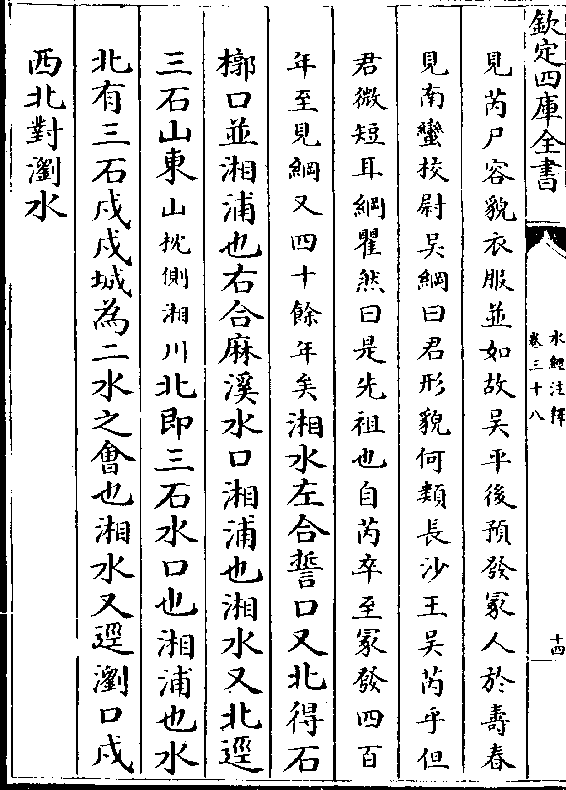 欽定四庫全書
水經注釋
卷三十八
十四
見芮尸容貌衣服並如故吳平後預發冢人於壽春
見南蠻校尉吳綱曰君形貌何類長沙王吳芮乎但
君微短耳綱瞿然曰是先祖也自芮卒至冢發四百
年至見綱又四十餘年矣湘水左合誓口又北得石
槨口並湘浦也右合麻溪水口湘浦也湘水又北逕
三石山東山枕側湘川北即三石水口也湘浦也水
北有三石戍戍城為二水之會也湘水又逕瀏口戍
西北對瀏水